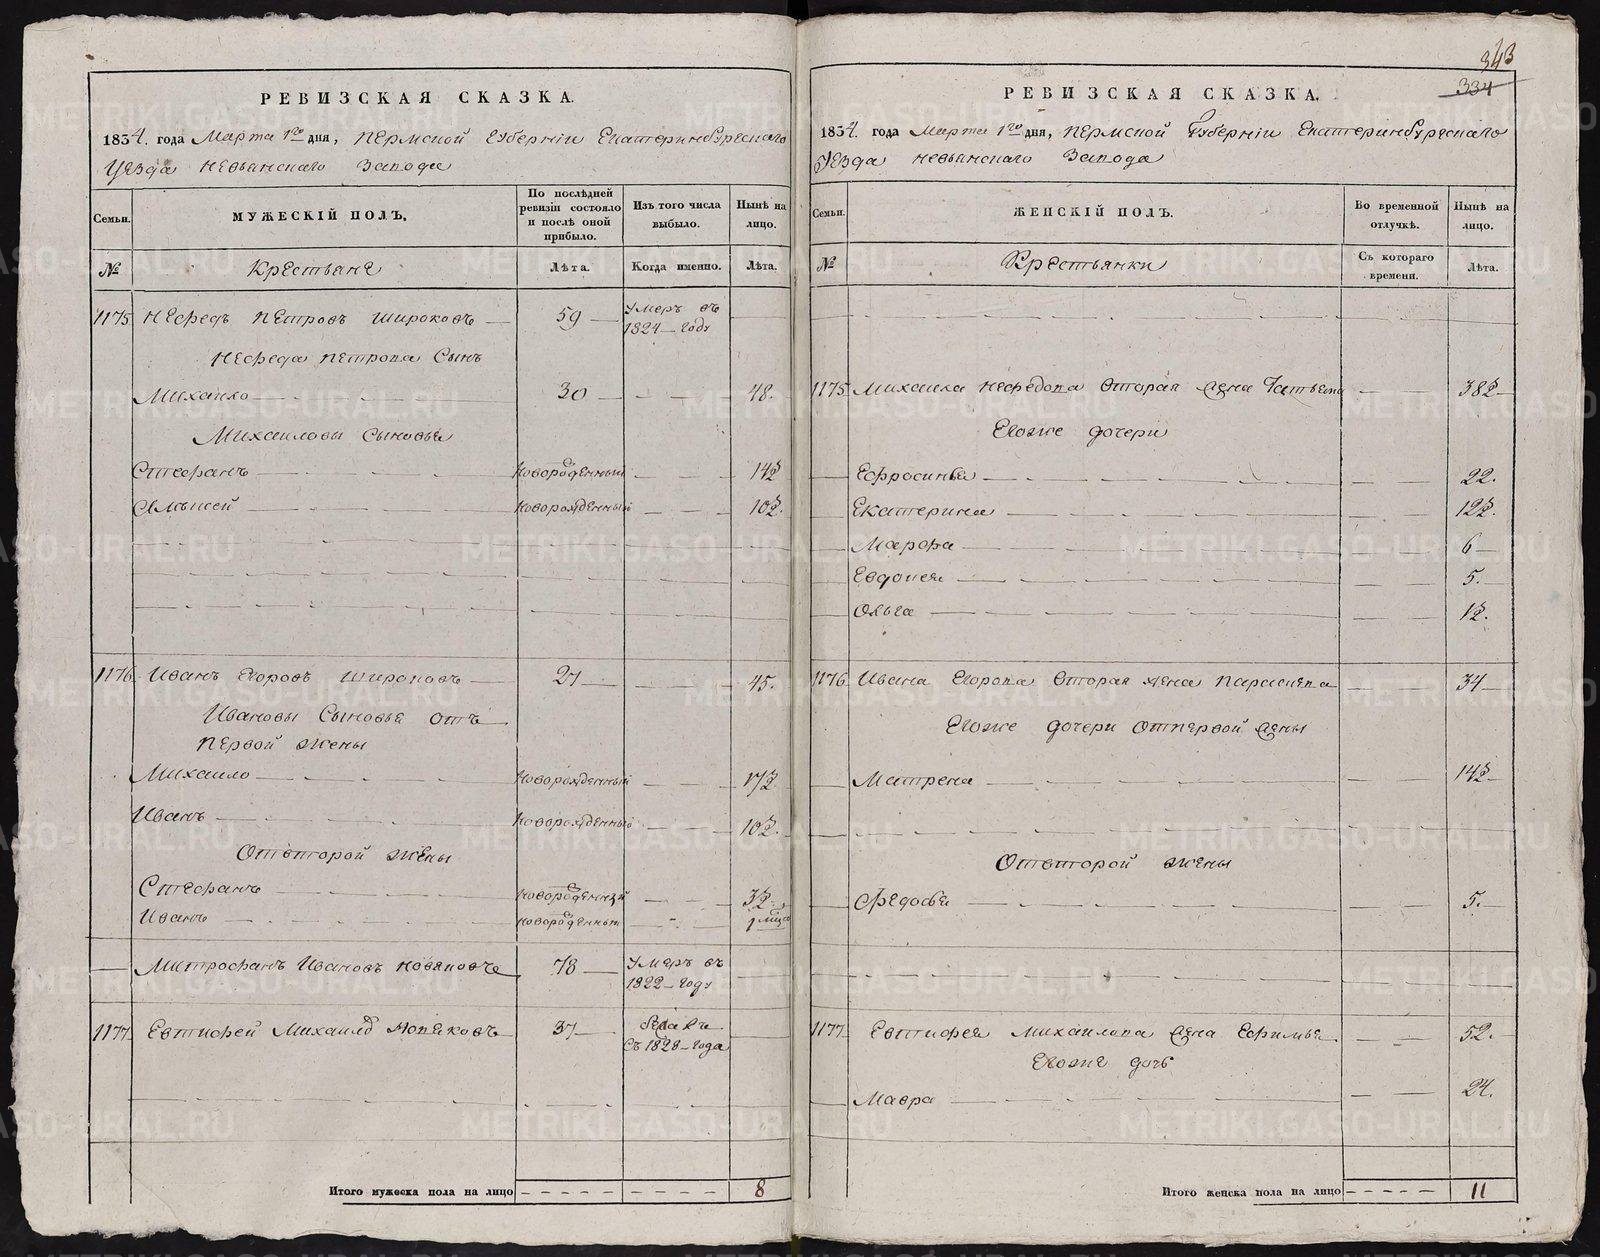 343
334
РЕВИЗСКАЯ СКАЗКА.
1834. года Марта 1го дня, Пермской Губернiи Екатеринбургскаго
Уезда Невьянскаго Завода
Семьи.
МУЖЕСКIЙ ПОЛЪ,
По послѣдней ревизiи состояло и послѣ оной прибыло.
Изъ того числа выбыло.
Нынѣ на лицо.
№
Крестьяне
Лѣта.
Когда именно.
Лѣта.
1175 Нефедъ Петровъ Широковъ 59 Умеръ въ 1824 году
Нефеда Петрова Сынъ
Михаило 30 48.
Михаиловы Сыновья
Стефанъ новорожденный 14½
Алѣксей новорожденный 10½.
1176 Иванъ Егоровъ Широковъ 27 45.
Ивановы Сыновья отъ
первой жены
Михаило новорожденный 17½
Иванъ новорожденный 10½.
Отвторой жены
Стефанъ новорожденный 3½.
Иванъ новорожденный 1
Митрофанъ Ивановъ 78 Умеръ въ 1822 году
1177 Евтифей Михаилов 37 съ 1828 года
Итого мужеска пола на лицо 8
РЕВИЗСКАЯ СКАЗКА.
1834. года Марта 1го дня, Пермской Губернiи Екатеринбургскаго
Уезда Невьянскаго Завода
Семьи.
ЖЕНСКIЙ ПОЛЪ.
Во временной отлучкѣ.
Нынѣ на лицо.
№
Крестьянки
Съ котораго времени.
Лѣта.
1175 Михаила Нефедова вторая жена Татьяна 38½
Егоже дочери
Ефросинья 22.
Екатерина 12½.
Марфа 6
Евдокея 5.
Ольга 1½.
1176 Ивана Егорова вторая жена Параскева 34
Егоже дочери отпервой жены
Матрена 14½
Отвторой жены
Федосья 5.
1177 Евтифея Михаилова жена Ефимья 52.
Егоже дочь
Мавра 24.
Итого женска пола на лицо 11
METRIKI.GASO-URAL.RU